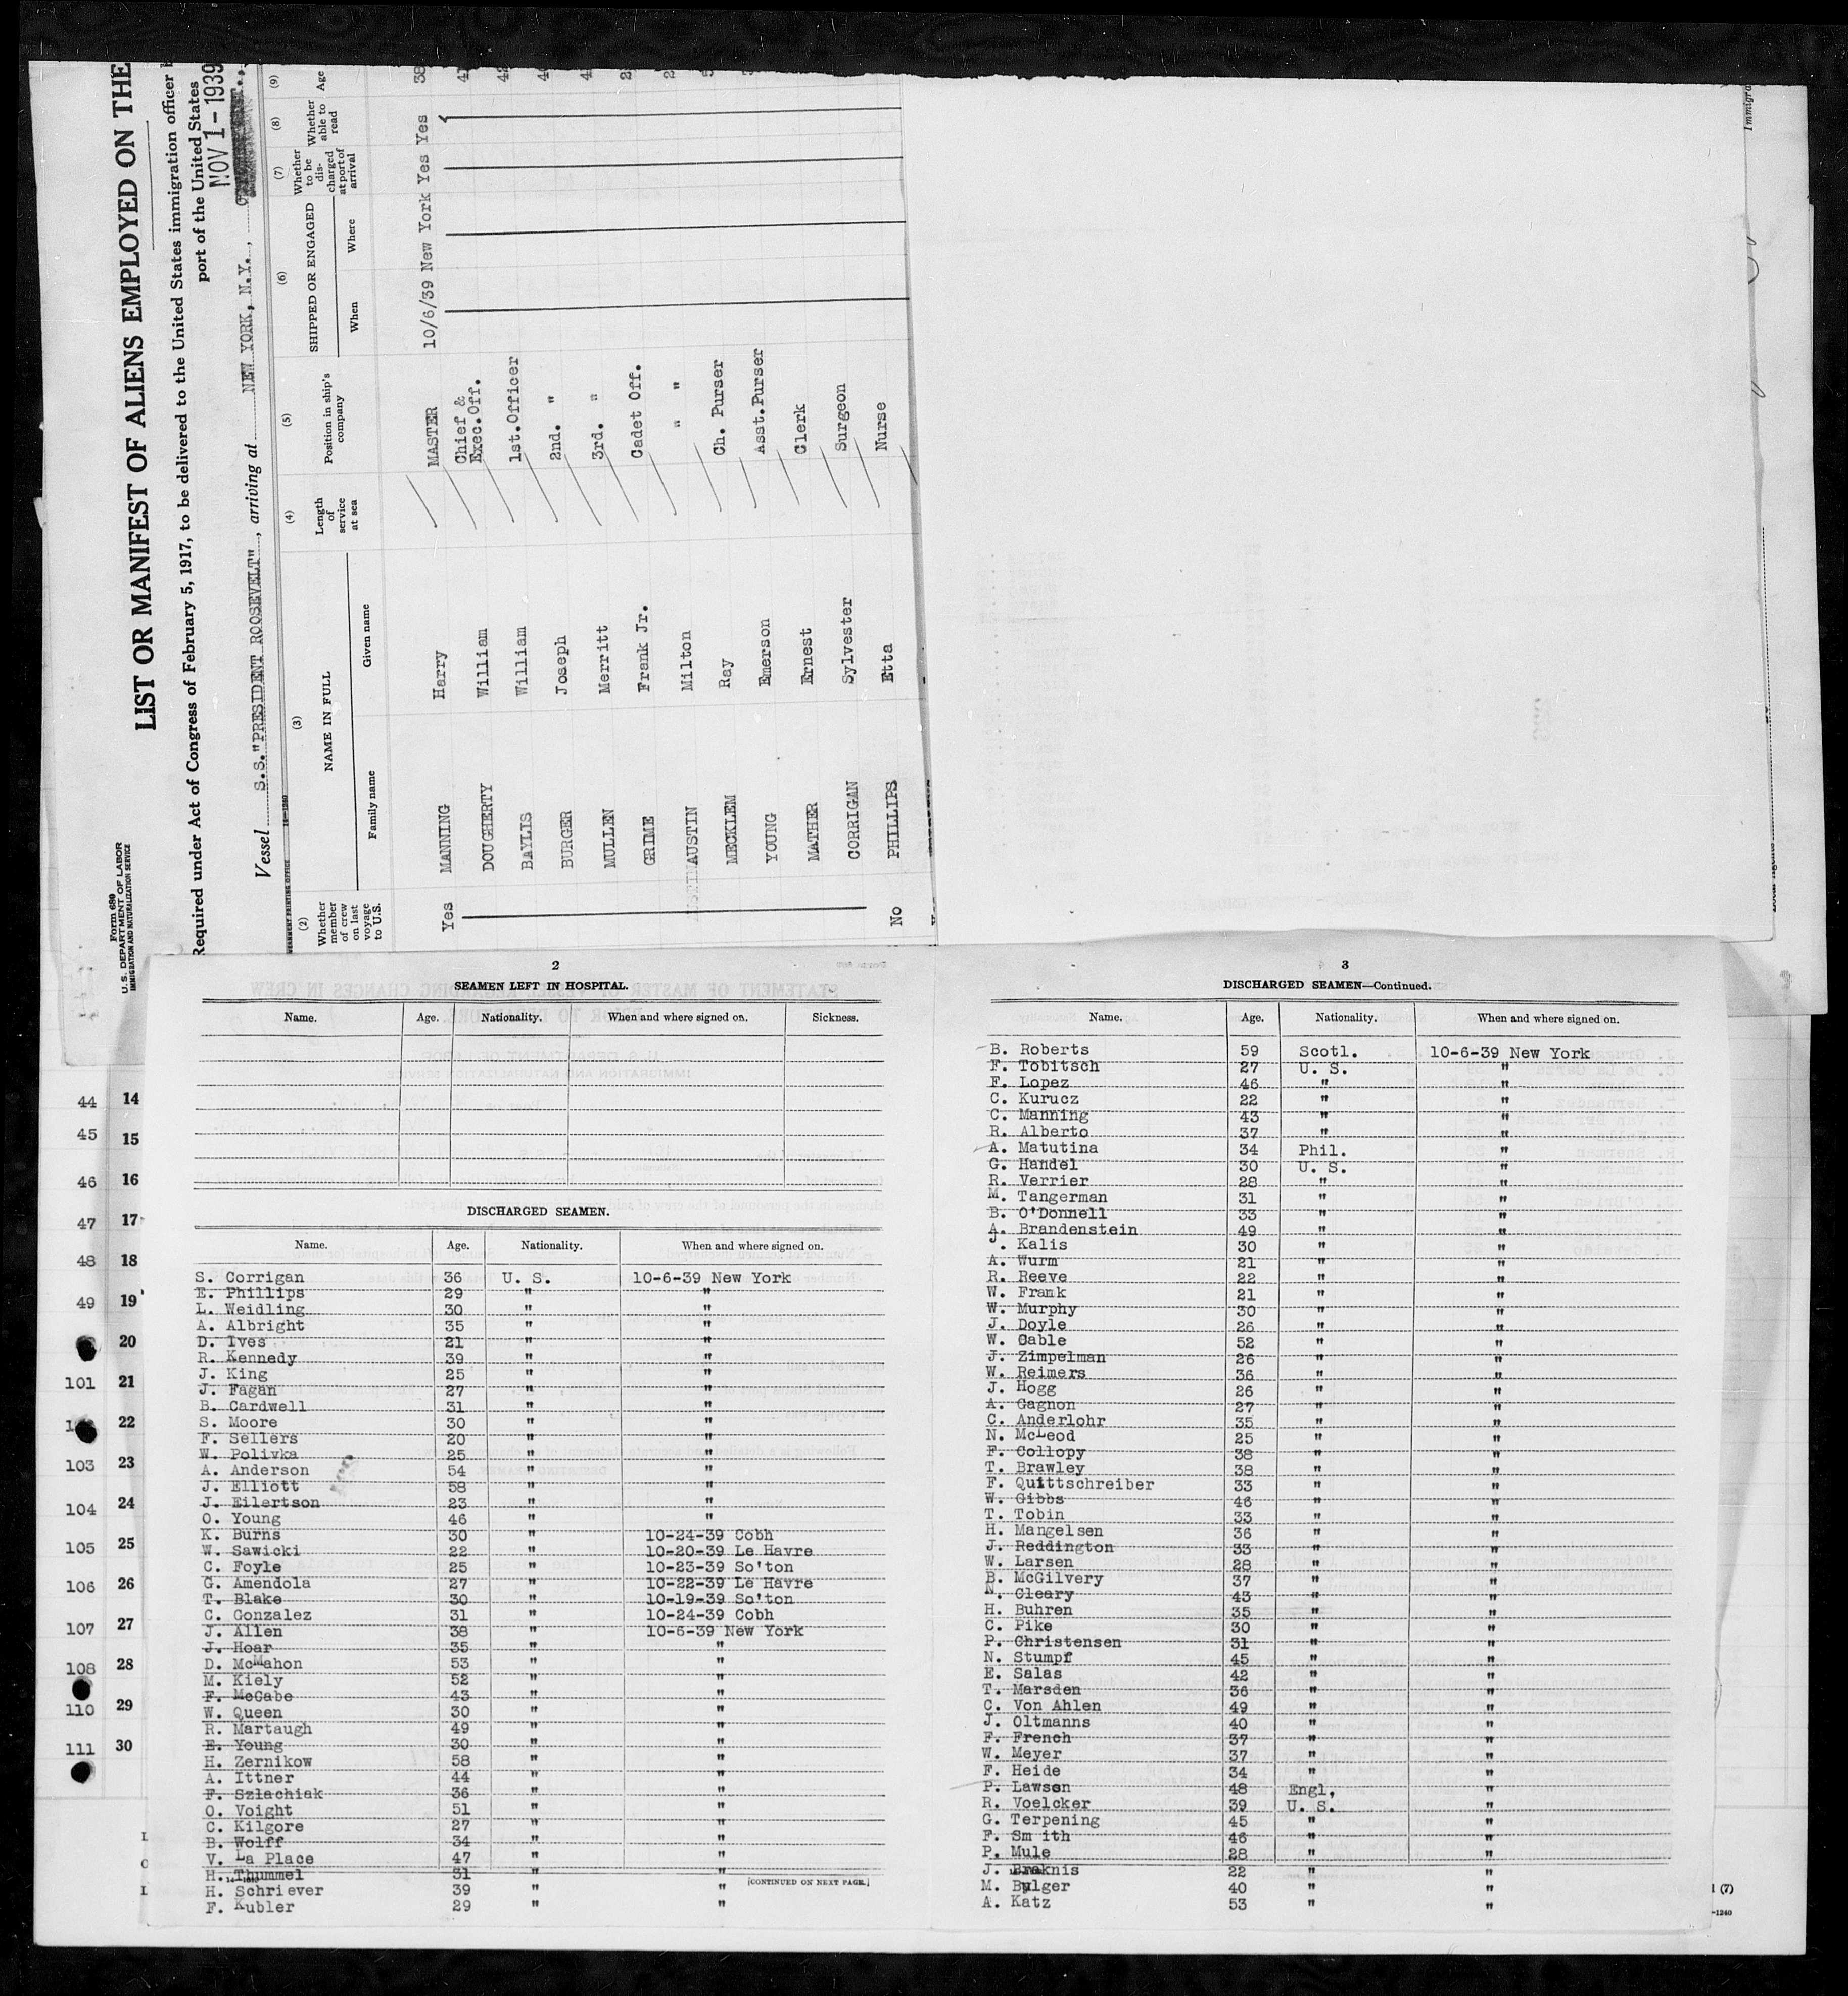 LIST OR MANIFEST OF ALIENS EMPLOYED ON THE
Required under Act of Congress of February 5, 1917, to be delivered to the United States immigration officer
port of the United States
NOV 1-1939
Form 680
U. S. DEPARTMENT OF LABOR
IMMIGRATION AND NATURALIZATION SERVICE
Vessel S.S."PRESIDENT ROOSEVELT", arriving at NEW YORK, N.Y.,
(2) (3) (4) (5) (6) (7) (8) (9)
Whether member of crew on last voyage to U.S. NAME IN FULL Length of service at sea Position in ship's company SHIPPED OR ENGAGED Whether to be discharged at port of arrival Whether able to read Age
Family name Given name When Where
Yes MANNING Harry MASTER 10/6/39 New York Yes Yes 38
DOUGHERTY William Chief & Exec.Off.
BAYLIS William 1st.Officer
BURGER Joseph 2nd. "
MULLEN Merritt 3rd. "
GRIME Frank Jr. Cadet Off.
AUSTIN Milton " "
MECKLEM Ray Ch. Purser
YOUNG Emerson Asst.Purser
MATHER Ernest Clerk
CORRIGAN Sylvester Surgeon
No PHILLIPS Etta Nurse
44 14
45 15
46 16
47 17
48 18
49 19
20
101 21
22
103 23
104 24
105 25
106 26
107 27
108 28
110 29
111 30
2
SEAMEN LEFT IN HOSPITAL.
Name. Age. Nationality. When and where signed on. Sickness.
DISCHARGED SEAMEN.
Name. Age. Nationality. When and where signed on.
S. Corrigan 36 U. S. 10-6-39 New York
E. Phillips 29 " "
L. Weidling 30 " "
A. Albright 35 " "
D. Ives 21 " "
R. Kennedy 39 " "
J. King 25 " "
J. Fagan 27 " "
B. Cardwell 31 " "
S. Moore 30 " "
F. Sellers 20 " "
W. Polivka 25 " "
A. Anderson 54 " "
J. Elliott 58 " "
J. Eilertson 23 " "
O. Young 46 " "
K. Burns 30 " 10-24-39 Cobh
W. Sawicki 22 " 10-20-39 Le Havre
C. Foyle 25 " 10-23-39 So'ton
G. Amendola 27 " 10-22-39 Le Havre
T. Blake 30 " 10-19-39 So'ton
C. Gonzalez 31 " 10-24-39 Cobh
J. Allen 38 " 10-6-39 New York
J. Hoar 35 " "
D. McMahon 53 " "
M. Kiely 52 " "
F. McCabe 43 " "
W. Queen 30 " "
R. Martaugh 49 " "
E. Young 30 " "
H. Zernikow 58 " "
A. Ittner 44 " "
F. Szlachiak 36 " "
O. Voight 51 " "
C. Kilgore 27 " "
B. Wolff 34 " "
V. La Place 47 " "
H. Thummel 31 " "
[CONTINUED ON NEXT PAGE.]
H. Schriever 39 " "
F. Kubler 29 " "
3
DISCHARGED SEAMEN—Continued.
Name. Age. Nationality. When and where signed on.
B. Roberts 59 Scotl. 10-6-39 New York
F. Tobitsch 27 U. S. "
F. Lopez 46 " "
C. Kurucz 22 " "
C. Manning 43 " "
R. Alberto 37 " "
A. Matutina 34 Phil. "
G. Handel 30 U. S. "
R. Verrier 28 " "
M. Tangerman 31 " "
B. O'Donnell 33 " "
A. Brandenstein 49 " "
J. Kalis 30 " "
A. Wurm 21 " "
R. Reeve 22 " "
W. Frank 21 " "
W. Murphy 30 " "
J. Doyle 26 " "
W. Cable 52 " "
J. Zimpelman 26 " "
W. Reimers 36 " "
J. Hogg 26 " "
A. Gagnon 27 " "
C. Anderlohr 35 " "
N. McLeod 25 " "
F. Collopy 38 " "
T. Brawley 38 " "
F. Quittschreiber 33 " "
W. Gibbs 46 " "
T. Tobin 33 " "
H. Mangelsen 36 " "
J. Reddington 33 " "
W. Larsen 28 " "
B. McGilvery 37 " "
N. Cleary 43 " "
H. Buhren 35 " "
C. Pike 30 " "
P. Christensen 31 " "
N. Stumpf 45 " "
E. Salas 42 " "
T. Marsden 36 " "
C. Von Ahlen 49 " "
J. Oltmanns 40 " "
F. French 37 " "
W. Meyer 37 " "
F. Heide 34 " "
P. Lawson 48 Engl, "
R. Voelcker 39 U. S. "
G. Terpening 45 " "
F. Sm ith 46 " "
P. Mule 28 " "
J. Braknis 22 " "
M. Bulger 40 " "
A. Katz 53 " "